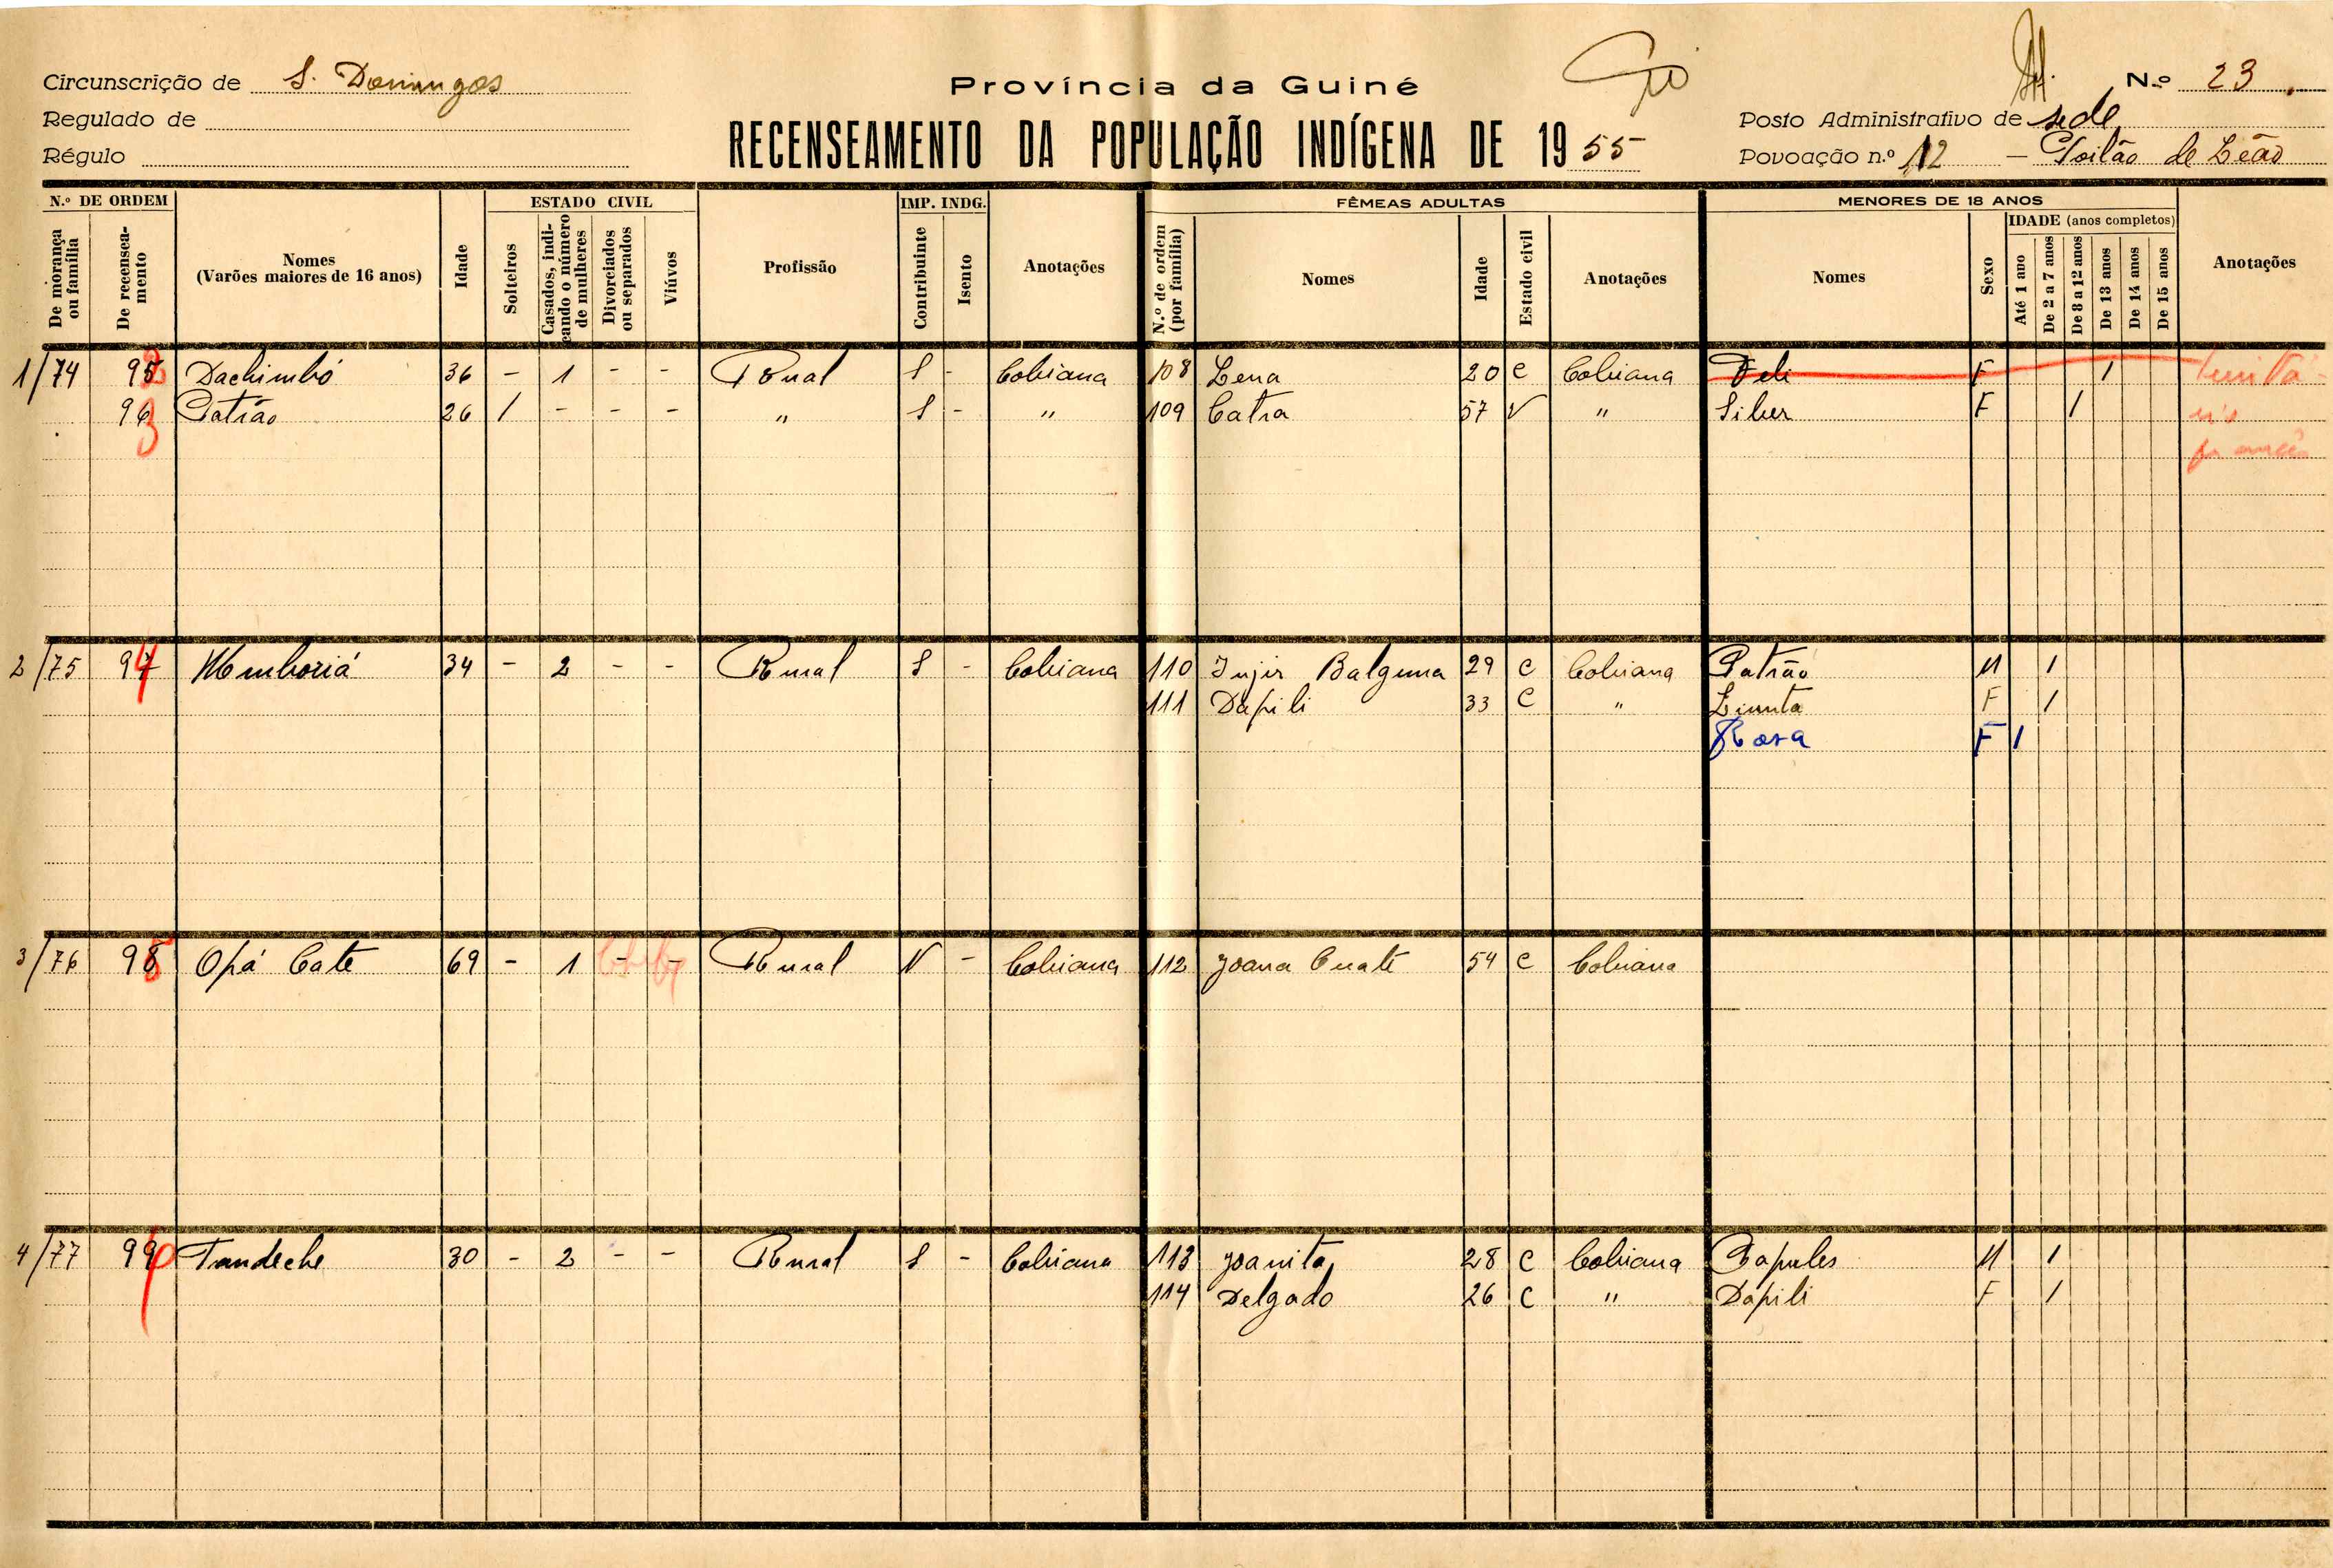 Circunscrição de S. Domingos
Regulado de
Régulo
Província da Guiné
RECENSEAMENTO DA POPULAÇÃO INDÍGENA DE 1955
N.º 23
Posto Administrativo de sede
Povoação n.º 12 - Poilão de Leão
N.º DE ORDEM
De morança ou família
De recenseamento
Nomes
(Varões maiores de 16 anos)
Idade
ESTADO CIVIL
Solteiros
Casados, indicando o número de mulheres
Divorciados ou separados
Viúvos
Profissão
IMP. INDG.
Contribuinte
Isento
Anotações
FÊMEAS ADULTAS
N.º de ordem (por família)
Nomes
Idade
Estado civil
Anotações
MENORES DE 18 ANOS
Nomes
Sexo
IDADE (anos completos)
Até 1 ano
De 2 a 7 anos
De 8 a 12 anos
De 13 anos
De 14 anos
De 15 anos
Anotações
1/74 95 Dachimbó 36 - 1 - - Rural S - Cobiana 108 Lena 20 C Cobiana Feli F 1
96 Patrão 26 1 - - - " S - " 109 Catra 57 V " Siber F 1
2/75 97 34 - 2 - - Rural S - Cobiana 110 Injir Balguma 29 C Cobiana Patrão M 1
111 Dapili 33 C " F 1
Rosa F 1
3/76 98 Opá Cate 69 - 1 - - Rural N - Cobiana 112 Joana Cuate 54 C Cobiana
4/77 99 Tandeche 30 - 2 - - Rural S - Cobiana 113 Joanita 28 C Cobiana Papules M 1
114 Delgado 26 C " Dapili F 1